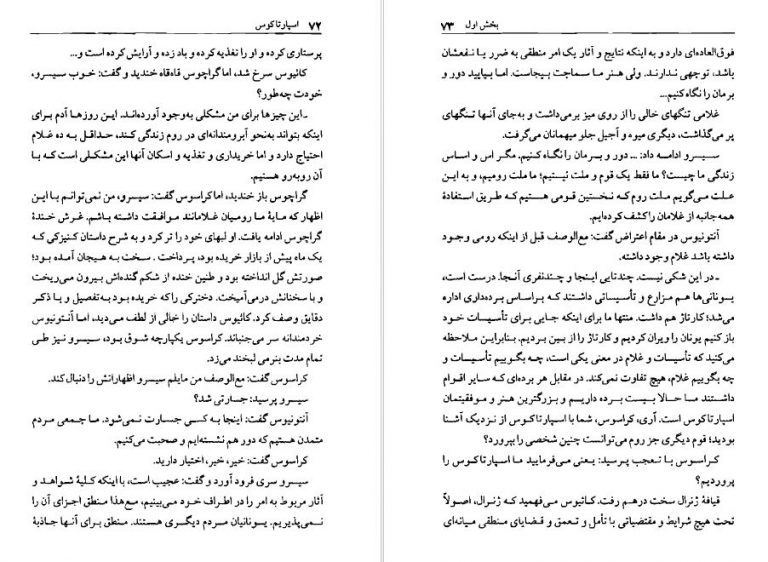 ۷۲ اسپارتاکوس
پرستاری کرده و او را تغذیه کرده و باد زده و آرایش کرده است و...
کائیوس سرخ شد، اما گراچوس قاه‌قاه خندید و گفت: خوب سیسرو،
خودت چه‌طور؟
ـ این چیزها برای من مشکلی به‌وجود آورده‌اند. این روزها آدم برای
اینکه بتواند به‌نحو آبرومندانه‌ای در روم زندگی کند، حداقل به ده غلام
احتیاج دارد و اما خریداری و تغذیه و اسکان آنها این مشکلی است که با
آن روبه‌رو هستیم.
گراچوس باز خندید، اما کراسوس گفت: سیسرو، من نمی‌توانم با این
اظهار که مایهٔ ما رومیان غلامانند موافقت داشته باشم. غرش خندهٔ
گراچوس ادامه یافت. او لبهای خود را تر کرد و به شرح داستان کنیزکی که
یک ماه پیش از بازار خریده بود، پرداخت. سخت به هیجان آمده بود؛
صورتش گل انداخته بود و طنین خنده از شکم گنده‌اش بیرون می‌ریخت
و با سخنانش درمی‌آمیخت. دخترکی را که خریده بود به‌تفصیل و با ذکر
دقایق وصف کرد. کائیوس داستان را خالی از لطف می‌دید، اما آنتونیوس
خردمندانه سر می‌جنباند. کراسوس یکپارچه شوق بود، سیسرو نیز طی
تمام مدت بنرمی لبخند می‌زد.
کراسوس گفت: مع‌الوصف من مایلم سیسرو اظهاراتش را دنبال کند.
سیسرو پرسید: جسارتی شد؟
آنتونیوس گفت: اینجا به کسی جسارت نمی‌شود. ما جمعی مردم
متمدن هستیم که دور هم نشسته‌ایم و صحبت می‌کنیم.
کراسوس گفت: خیر، خیر، اختیار دارید.
سیسرو سری فرود آورد و گفت: عجیب است، با اینکه کلیهٔ شواهد و
آثار مربوط به امر را در اطراف خود می‌بینیم، مع‌هذا منطق اجزای آن را
نمی‌پذیریم. یونانیان مردم دیگری هستند. منطق برای آنها جاذبهٔ
بخش اول ۷۳
فوق‌العاده‌ای دارد و به اینکه نتایج و آثار یک امر منطقی به ضرر یا نفعشان
باشد، توجهی ندارند. ولی هنر ما سماجت بیجاست. اما بیایید دور و
برمان را نگاه کنیم...
غلامی تنگهای خالی را از روی میز برمی‌داشت و به‌جای آنها تنگهای
پر می‌گذاشت، دیگری میوه و آجیل جلو میهمانان می‌گرفت.
سیسرو ادامه داد: ... دور و برمان را نگاه کنیم. مگر اس و اساس
زندگی ما چیست؟ ما فقط یک قوم و ملت نیستیم؛ ما ملت رومیم، و به این
علت می‌گوییم ملت روم که نخستین قومی هستیم که طریق استفادهٔ
همه‌جانبه از غلامان را کشف کرده‌ایم.
آنتونیوس در مقام اعتراض گفت: مع‌الوصف قبل از اینکه رومی وجود
داشته باشد غلام وجود داشته.
ـ در این شکی نیست. چندتایی اینجا و چندنفری آنجا. درست است،
یونانی‌ها هم مزارع و تأسیساتی داشتند که براساس برده‌داری اداره
می‌شد؛ کارتاژ هم داشت. منتها ما برای اینکه جایی برای تأسیسات خود
باز کنیم یونان را ویران کردیم و کارتاژ را از بین بردیم. بنابراین ملاحظه
می‌کنید که تأسیسات و غلام در معنی یکی است، چه بگوییم تأسیسات و
چه بگوییم غلام، هیچ تفاوت نمی‌کند. در مقابل هر برده‌ای که سایر اقوام
داشتند ما حالا بیست برده داریم و بزرگترین هنر و موفقیتمان
اسپارتاکوس است. آری، کراسوس، شما با اسپارتاکوس از نزدیک آشنا
بودید؛ قوم دیگری جز روم می‌توانست چنین شخصی را بپرورد؟
کراسوس با تعجب پرسید: یعنی می‌فرمایید ما اسپارتاکوس را
پروردیم؟
قیافهٔ ژنرال سخت درهم رفت. کائیوس می‌فهمید که ژنرال، اصولاً
تحت هیچ شرایط و مقتضیاتی با تأمل و تعمق و قضایای منطقی میانه‌ای